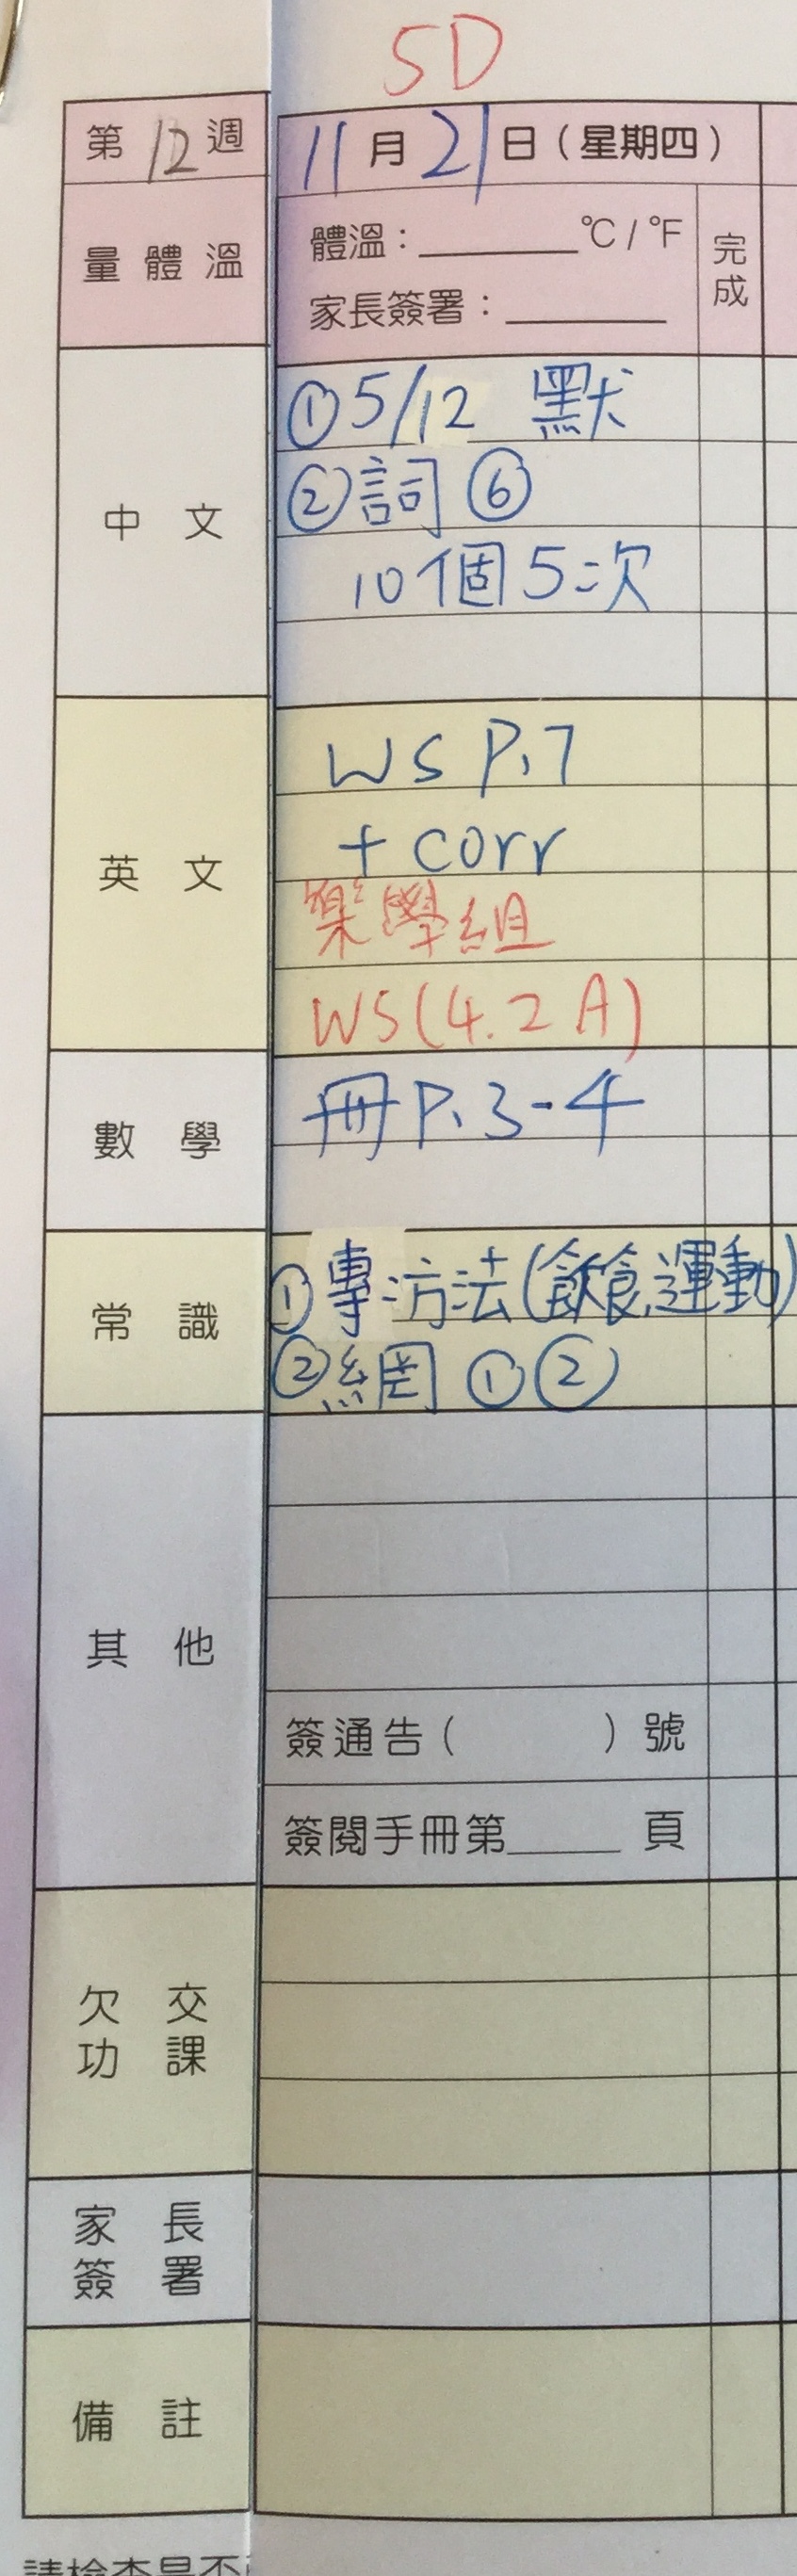 5D
第12週 11月21日（星期四）
量體溫 體溫：______℃/℉ 完成
家長簽署：______
中文 ①5/12 默
②詞⑥
10個5次
英文 WS P.7
+ corr
樂學組
WS(4.2A)
數學 冊P.3-4
常識 ①專方法(飲食,運動)
②網 ①②
其他
簽通告（ ）號
簽閱手冊第______頁
欠交功課
家長簽署
備註
請檢查是否